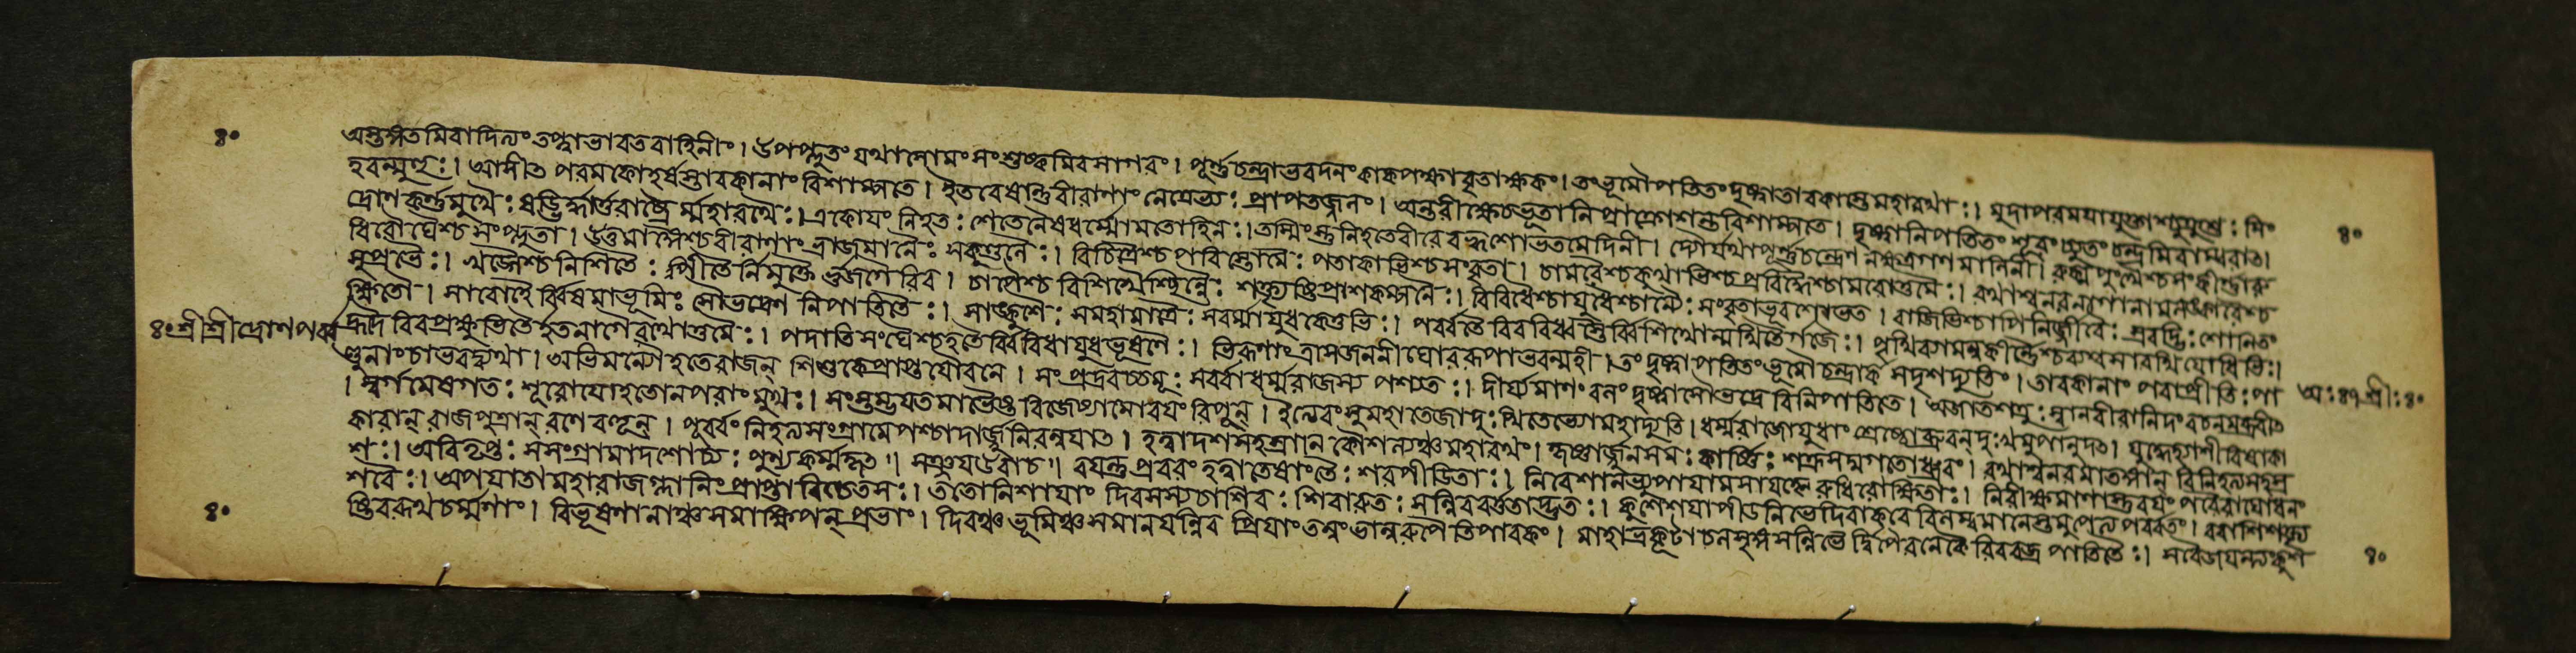 ৪০
অস্তঙ্গতমিবাদিত্যং তপ্ত্বাভাবতবাহিনীং। উপপ্লুতং যথাসোমং সংশুষ্কমিবসাগরং। পূর্ণচন্দ্রাভবদনং কাকপক্ষাবৃতাক্ষকং। তংভূমৌপতিতংদৃষ্ট্বাতাবকাস্তেমহারথাঃ। মুদাপরময়াযুক্তাশ্চুক্রুশুঃ সিং
হবন্মুহুঃ। আসীৎ পরমকোহর্ষস্তাবকানাং বিশাম্পতে। ইতবেষান্তুবীরাণাং নেত্রেভ্যঃ প্রাপতজ্জলং। অন্তরীক্ষেচভূতানি প্রাক্রোশন্তবিশাম্পতে। দৃষ্ট্বানিপতিতং শূরং চ্যুতং চন্দ্রমিবাম্বরাৎ।
দ্রোণকর্ণমুখৈঃ ষড্ভির্ধার্ত্তরাষ্ট্রৈর্ম্মহারথৈঃ। একোয়ং নিহতঃ শেতেনৈষধর্ম্মোমতোহিনঃ। তস্মিংস্তুনিহতেবীরে বহ্বশোভতমেদিনী। দ্যৌর্যথাপূর্ণচন্দ্রেণ নক্ষত্রগণমালিনী। রুক্মপুংখৈশ্চসংকীর্ণারু
৪০
ধিরৌঘৈশ্চ সংপ্লুতা। উত্তমাঙ্গৈশ্চবীরাণাং ভ্রাজমানৈঃ সকুণ্ডলৈঃ। বিচিত্রৈশ্চ পরিস্তোমৈঃ পতাকাভিশ্চসংবৃতা। চামরৈশ্চকুথাভিশ্চ প্রবিদ্ধৈশ্চামরোত্তমৈঃ। রথাশ্বনরনাগানামলঙ্কারৈশ্চ
সুপ্রভৈঃ। খড়্গৈশ্চনিশিতৈঃ পীতৈর্নির্মুক্তৈর্ভুজগৈরিব। চাপৈশ্চ বিশিখৈশ্ছিন্নৈঃ শক্ত্যৃষ্টিপ্রাশকম্পনৈঃ। বিবিধৈশ্চায়ুধৈশ্চান্যৈঃ সংবৃতাভূরশোভত। বাজিভিশ্চাপিনির্জীবৈঃ স্রবদ্ভিঃ শোনিতং
ক্ষিতৌ। সারোহৈর্ব্বিষমাভূমিঃ সৌভদ্রেণ নিপাতিতৈঃ। সাঙ্কুশৈঃ সমহামাত্রৈঃ সবর্ম্মায়ুধকেতুভিঃ। পবর্বতৈরিববিধ্বস্তৈর্ব্বিশিখোন্মথিতৈর্গজৈঃ। পৃথিব্যামনুকীর্ণৈশ্চব্যশ্বসারথিযোধিভিঃ।
৪০ শ্রীশ্রীদ্রোণপর্ব্ব
হ্রদৈরিবপ্রক্ষুভিতৈর্হতনাগৈরথোত্তমৈঃ। পদাতিসংঘৈশ্চহতৈর্ব্বিবিধায়ুধভূষণৈঃ। ভিরূণাং ত্রাসজননীঘোররূপাভবন্মহী। তং দৃষ্ট্বাপতিতংভূমৌচন্দ্রার্ক সদৃশদ্যুতিং। তাবকানাং পরাপ্রীতিঃ পা
ণ্ডুনাংচাভবদ্ব্যথা। অভিমন্যৌহতেরাজন্ শিশুকেপ্রাপ্তযৌবনে। সংপ্রদ্রবচ্চমূঃ সবর্বাধর্ম্মরাজস্য পশ্যতঃ। দীর্যমাণং বলং দৃষ্ট্বাসৌভদ্রে বিনিপাতিতে। অজাতশত্রুঃ স্বানবীরানিদং বচনমব্রবীৎ
অঃ ৪৭ শ্রীঃ ৪০
। স্বর্গমেষগতঃ শূরোযোহতোনপরাংমুখঃ। সংস্তম্ভয়তমাভৈষ্ট বিজেষ্যামোরণে রিপূন্। ইত্যেবংসুমহাতেজাদুঃখিতেভ্যোমহাদ্যুতি। ধর্ম্মরাজোযুধাং শ্রেষ্ঠোব্রুবন্দুঃখমুপানুদৎ। যুদ্ধেহ্যাশীবিষাকা
কারান্ রাজপুত্রান্ রণে বহূন্। পূবর্বং নিহত্যসংগ্রামেপশ্চাদার্জ্জুনিরন্বযাৎ। হত্বাদশসহস্রানি কৌশল্যঞ্চমহারথং। কৃষ্ণার্জ্জুনসমঃ কার্ষ্ণিঃ শত্রুসদ্মগতোধ্রুবং। রথাশ্বনরমাতঙ্গান্ বিনিহত্যসহস্র
শঃ। অবিতৃপ্তঃ সসংগ্রামাদশোচ্যঃ পুণ্যকর্ম্মকৃৎ। সঞ্জয়উবাচ। বয়ন্তুপ্রবরং হত্বাতেষাংতৈঃ শরপীড়িতাঃ। নিবেশায়াভ্যুপায়ামসায়াহ্নে রুধিরোক্ষিতাঃ। নিরীক্ষমাণাস্তুবয়ং পরেরাযোধনং
শবৈঃ। অপযাতামহারাজগ্লানিং প্রাপ্তাবিচেতসঃ। ততোনিশায়াং দিবসস্যচাশিবঃ শিবারুতঃ সন্ধিরবর্ত্ততাদ্ভুতঃ। কুশেশয়াপীডনিভেদিবাকরে বিলম্বমানেস্তমুপেত্য পবর্বতং। বরাশিশক্ত্যৃ
৪০
ষ্টিবরূথচর্ম্মণাং। বিভূষণানাঞ্চসমাক্ষিপন্ প্রভাং। দিবঞ্চভূমিঞ্চসমানয়ন্নিব প্রিয়াং তনুংভানুরুপৈতিপাবকং। মহাভ্রকূটাচলশৃঙ্গসন্নিভৈর্দ্বিপৈরনেকৈরিববজ্র পাতিতৈঃ। সবৈজয়ন্ত্যঙ্কুশ
৪০